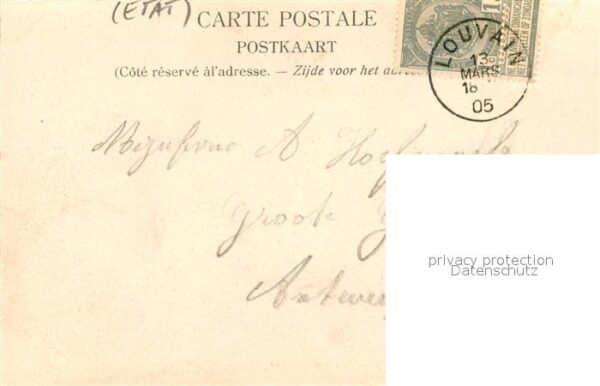 (ETAT)
CARTE POSTALE
POSTKAART
(Côté réservé àl'adresse. — Zijde voor het
LOUVAIN
13
MARS
18
05
A
Groote
Antwer
privacy protection
Datenschutz